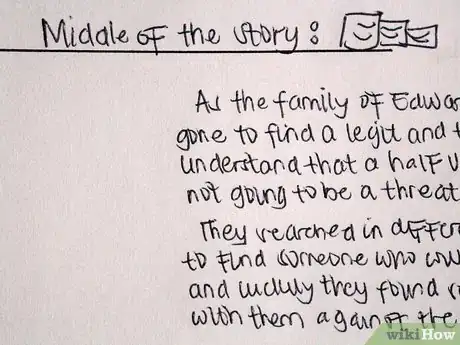 Middle of the story :
As the family of Edwar
gone to find a legit and t
understand that a half v
not going to be a threat
They reached in differ
to find someone who
and luckily they found
with them against the
wikiHow